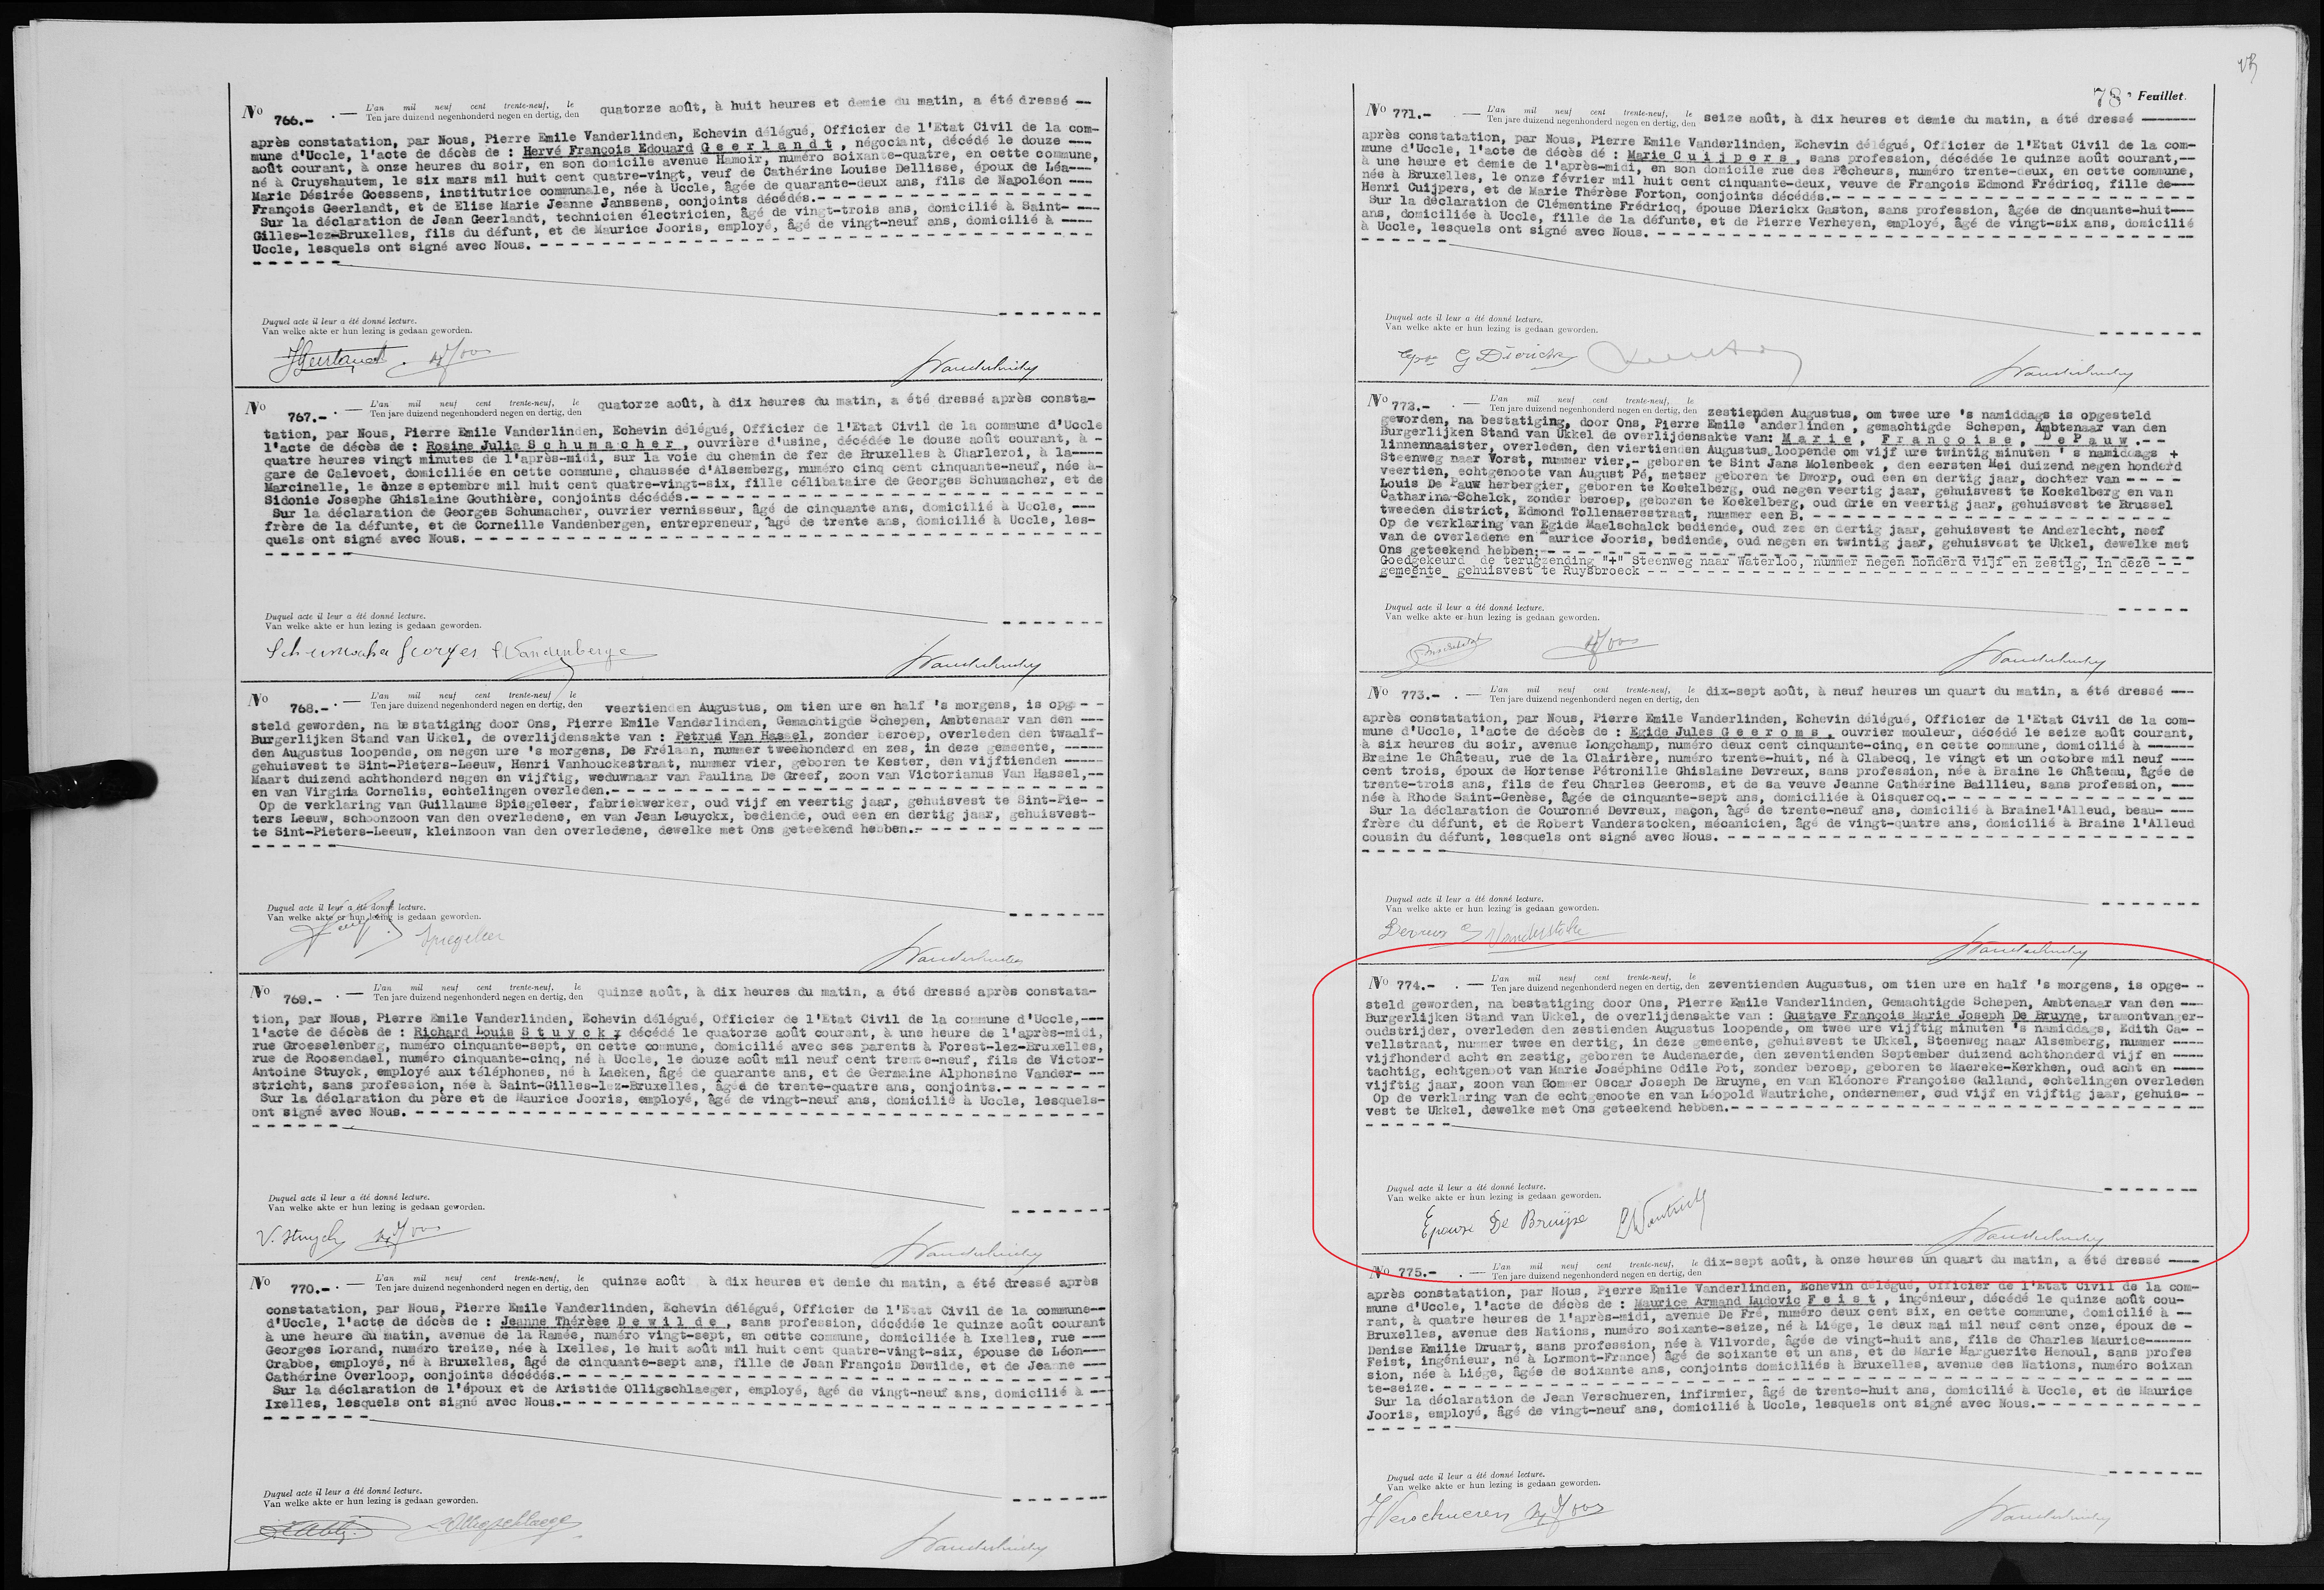 No 766.- . — L'an mil neuf cent trente-neuf, le
Ten jare duizend negenhonderd negen en dertig, den quatorze août, à huit heures et demie du matin, a été dressé --
après constatation, par Nous, Pierre Emile Vanderlinden, Echevin délégué, Officier de l'Etat Civil de la com-
mune d'Uccle, l'acte de décès de : Hervé François Edouard G e e r l a n d t , négociant, décédé le douze ---
août courant, à onze heures du soir, en son domicile avenue Hamoir, numéro soixante-quatre, en cette commune,
né à Cruyshautem, le six mars mil huit cent quatre-vingt, veuf de Cathérine Louise Dellisse, époux de Léa---
Marie Désirée Goessens, institutrice communale, née à Uccle, âgée de quarante-deux ans, fils de Napoléon ---
François Geerlandt, et de Elise Marie Jeanne Janssens, conjoints décédés.- - - - - - - - - - - - - - - - - -
Sur la déclaration de Jean Geerlandt, technicien électricien, âgé de vingt-trois ans, domicilié à Saint- ---
Gilles-lez-Bruxelles, fils du défunt, et de Maurice Jooris, employé, âgé de vingt-neuf ans, domicilié à ----
Uccle, lesquels ont signé avec Nous. - - - - - - - - - - - - - - - - - - - - - - - - - - - - - - - - - - - -
Duquel acte il leur a été donné lecture.
Van welke akte er hun lezing is gedaan geworden.
JGeerlandt. MJoos Vanderlinden
No 767.- . — L'an mil neuf cent trente-neuf, le
Ten jare duizend negenhonderd negen en dertig, den quatorze août, à dix heures du matin, a été dressé après consta-
tation, par Nous, Pierre Emile Vanderlinden, Echevin délégué, Officier de l'Etat Civil de la commune d'Uccle
l'acte de décès de : Rosine Julia S c h u m a c h e r , ouvrière d'usine, décédée le douze août courant, à -
quatre heures vingt minutes de l'après-midi, sur la voie du chemin de fer de Bruxelles à Charleroi, à la----
gare de Calevoet, domiciliée en cette commune, chaussée d'Alsemberg, numéro cinq cent cinquante-neuf, née à-
Marcinelle, le onze septembre mil huit cent quatre-vingt-six, fille célibataire de Georges Schumacher, et de
Sidonie Josephe Ghislaine Gouthière, conjoints décédés.- - - - - - - - - - - - - - - - - - - - - - - - - - -
Sur la déclaration de Georges Schumacher, ouvrier vernisseur, âgé de cinquante ans, domicilié à Uccle, ---
frère de la défunte, et de Corneille Vandenbergen, entrepreneur, âgé de trente ans, domicilié à Uccle, les-
quels ont signé avec Nous. - - - - - - - - - - - - - - - - - - - - - - - - - - - - - - - - - - - - - - - - -
Duquel acte il leur a été donné lecture.
Van welke akte er hun lezing is gedaan geworden.
Schumacher Georges Vandenberge Vanderlinden
No 768.- . — L'an mil neuf cent trente-neuf le
Ten jare duizend negenhonderd negen en dertig, den veertienden Augustus, om tien ure en half 's morgens, is opge- -
steld geworden, na bestatiging door Ons, Pierre Emile Vanderlinden, Gemachtigde Schepen, Ambtenaar van den ---
Burgerlijken Stand van Ukkel, de overlijdensakte van : Petrus Van Hassel, zonder beroep, overleden den twaalf-
den Augustus loopende, om negen ure 's morgens, De Frélaan, nummer tweehonderd en zes, in deze gemeente, -----
gehuisvest te Sint-Pieters-Leeuw, Henri Vanhouckestraat, nummer vier, geboren te Kester, den vijftienden -----
Maart duizend achthonderd negen en vijftig, weduwnaar van Paulina De Greef, zoon van Victorianus Van Hassel,--
en van Virginia Cornelis, echtelingen overleden.- - - - - - - - - - - - - - - - - - - - - - - - - - - - - - -
Op de verklaring van Guillaume Spiegeleer, fabriekwerker, oud vijf en veertig jaar, gehuisvest te Sint-Pie- -
ters Leeuw, schoonzoon van den overledene, en van Jean Leuyckx, bediende, oud een en dertig jaar, gehuisvest-
te Sint-Pieters-Leeuw, kleinzoon van den overledene, dewelke met Ons geteekend hebben.- - - - - - - - - - - -
Duquel acte il leur a été donné lecture.
Van welke akte er hun lezing is gedaan geworden.
Spiegeleer Vanderlinden
No 769.- . — L'an mil neuf cent trente-neuf, le
Ten jare duizend negenhonderd negen en dertig, den quinze août, à dix heures du matin, a été dressé après constata-
tion, par Nous, Pierre Emile Vanderlinden, Echevin délégué, Officier de l'Etat Civil de la commune d'Uccle,---
l'acte de décès de : Richard Louis S t u y c k , décédé le quatorze août courant, à une heure de l'après-midi,
rue Groeselenberg, numéro cinquante-sept, en cette commune, domicilié avec ses parents à Forest-lez-Bruxelles,
rue de Roosendael, numéro cinquante-cinq, né à Uccle, le douze août mil neuf cent trente-neuf, fils de Victor-
Antoine Stuyck, employé aux téléphones, né à Laeken, âgé de quarante ans, et de Germaine Alphonsine Vander- --
stricht, sans profession, née à Saint-Gilles-lez-Bruxelles, âgée de trente-quatre ans, conjoints.- - - - - - -
Sur la déclaration du père et de Maurice Jooris, employé, âgé de vingt-neuf ans, domicilié à Uccle, lesquels-
ont signé avec Nous. - - - - - - - - - - - - - - - - - - - - - - - - - - - - - - - - - - - - - - - - - - - -
Duquel acte il leur a été donné lecture.
Van welke akte er hun lezing is gedaan geworden.
V. Stuyck MJoos Vanderlinden
No 770.- . — L'an mil neuf cent trente-neuf, le
Ten jare duizend negenhonderd negen en dertig, den quinze août à dix heures et demie du matin, a été dressé après
constatation, par Nous, Pierre Emile Vanderlinden, Echevin délégué, Officier de l'Etat Civil de la commune--
d'Uccle, l'acte de décès de : Jeanne Thérèse D e w i l d e , sans profession, décédée le quinze août courant
à une heure du matin, avenue de la Ramée, numéro vingt-sept, en cette commune, domiciliée à Ixelles, rue ---
Georges Lorand, numéro treize, née à Ixelles, le huit août mil huit cent quatre-vingt-six, épouse de Léon---
Crabbe, employé, né à Bruxelles, âgé de cinquante-sept ans, fille de Jean François Dewilde, et de Jeanne ---
Cathérine Overloop, conjoints décédés.- - - - - - - - - - - - - - - - - - - - - - - - - - - - - - - - - - -
Sur la déclaration de l'époux et de Aristide Olligschlaeger, employé, âgé de vingt-neuf ans, domicilié à --
Ixelles, lesquels ont signé avec Nous.- - - - - - - - - - - - - - - - - - - - - - - - - - - - - - - - - - -
Duquel acte il leur a été donné lecture.
Van welke akte er hun lezing is gedaan geworden.
Olligschlaeger Vanderlinden
78e Feuillet.
No 771.- . — L'an mil neuf cent trente-neuf, le
Ten jare duizend negenhonderd negen en dertig, den seize août, à dix heures et demie du matin, a été dressé -------
après constatation, par Nous, Pierre Emile Vanderlinden, Echevin délégué, Officier de l'Etat Civil de la com-
mune d'Uccle, l'acte de décès dé : Marie C u i j p e r s , sans profession, décédée le quinze août courant,--
à une heure et demie de l'après-midi, en son domicile rue des Pêcheurs, numéro trente-deux, en cette commune,
née à Bruxelles, le onze février mil huit cent cinquante-deux, veuve de François Edmond Frédricq, fille de---
Henri Cuijpers, et de Marie Thérèse Forton, conjoints décédés.- - - - - - - - - - - - - - - - - - - - - - - -
Sur la déclaration de Clémentine Frédricq, épouse Dierickx Gaston, sans profession, âgée de cinquante-huit---
ans, domiciliée à Uccle, fille de la défunte, et de Pierre Verheyen, employé, âgé de vingt-six ans, domicilié
à Uccle, lesquels ont signé avec Nous. - - - - - - - - - - - - - - - - - - - - - - - - - - - - - - - - - - -
Duquel acte il leur a été donné lecture.
Van welke akte er hun lezing is gedaan geworden.
Epse G Dierickx Vanderlinden
No 772.- . — L'an mil neuf cent trente-neuf, le
Ten jare duizend negenhonderd negen en dertig, den zestienden Augustus, om twee ure 's namiddags is opgesteld
geworden, na bestatiging, door Ons, Pierre Emile Vanderlinden , gemachtigde Schepen, Ambtenaar van den
Burgerlijken Stand van Ukkel de overlijdensakte van: M a r i e , F r a n ç o i s e , D e P a u w .- -
linnennaaister, overleden, den viertienden Augustus loopende om vijf ure twintig minuten 's namiddags +
Steenweg naar Vorst, nummer vier,- geboren te Sint Jans Molenbeek , den eersten Mei duizend negen honderd
veertien, echtgenoote van August Pé, metser geboren te Dworp, oud een en dertig jaar, dochter van - - - -
Louis De Pauw herbergier, geboren te Koekelberg, oud negen veertig jaar, gehuisvest te Koekelberg en van
Catharina Schelck, zonder beroep, geboren te Koekelberg, oud drie en veertig jaar, gehuisvest te Brussel
tweeden district, Edmond Tollenaerestraat, nummer een B. - - - - - - - - - - - - - - - - - - - - - - - -
Op de verklaring van Egide Maelschalck bediende, oud zes en dertig jaar, gehuisvest te Anderlecht, neef
van de overledene en Maurice Jooris, bediende, oud negen en twintig jaar, gehuisvest te Ukkel, dewelke met
Ons geteekend hebben;- - - - - - - - - - - - - - - - - - - - - - - - - - - - - - - - - - - - - - - - - - -
Goedgekeurd de terugzending "+" Steenweg naar Waterloo, nummer negen honderd vijf en zestig, in deze - -
gemeente gehuisvest te Ruysbroeck - - - - - - - - - - - - - - - - - - - - - - - - - - - - - - - - - - - -
Duquel acte il leur a été donné lecture.
Van welke akte er hun lezing is gedaan geworden.
MJoos Vanderlinden
No 773.- . — L'an mil neuf cent trente-neuf, le
Ten jare duizend negenhonderd negen en dertig, den dix-sept août, à neuf heures un quart du matin, a été dressé ---
après constatation, par Nous, Pierre Emile Vanderlinden, Echevin délégué, Officier de l'Etat Civil de la com-
mune d'Uccle, l'acte de décès de : Egide Jules G e e r o m s , ouvrier mouleur, décédé le seize août courant,
à six heures du soir, avenue Longchamp, numéro deux cent cinquante-cinq, en cette commune, domicilié à ------
Braine le Château, rue de la Clairière, numéro trente-huit, né à Clabecq, le vingt et un octobre mil neuf ---
cent trois, époux de Hortense Pétronille Ghislaine Devreux, sans profession, née à Braine le Château, âgée de
trente-trois ans, fils de feu Charles Geeroms, et de sa veuve Jeanne Cathérine Baillieu, sans profession, ---
née à Rhode Saint-Genèse, âgée de cinquante-sept ans, domiciliée à Oisquercq.- - - - - - - - - - - - - - - -
Sur la déclaration de Couronné Devreux, maçon, âgé de trente-neuf ans, domicilié à Brainel'Alleud, beau- ---
frère du défunt, et de Robert Vanderstocken, mécanicien, âgé de vingt-quatre ans, domicilié à Braine l'Alleud
cousin du défunt, lesquels ont signé avec Nous. - - - - - - - - - - - - - - - - - - - - - - - - - - - - - - -
Duquel acte il leur a été donné lecture.
Van welke akte er hun lezing is gedaan geworden.
Devreux Vanderlinden
No 774.- . — L'an mil neuf cent trente-neuf, le
Ten jare duizend negenhonderd negen en dertig, den zeventienden Augustus, om tien ure en half 's morgens, is opge- -
steld geworden, na bestatiging door Ons, Pierre Emile Vanderlinden, Gemachtigde Schepen, Ambtenaar van den ---
Burgerlijken Stand van Ukkel, de overlijdensakte van : Gustave François Marie Joseph De Bruyne, tramontvanger-
oudstrijder, overleden den zestienden Augustus loopende, om twee ure vijftig minuten 's namiddags, Edith Ca- -
vellstraat, nummer twee en dertig, in deze gemeente, gehuisvest te Ukkel, Steenweg naar Alsemberg, nummer ----
vijfhonderd acht en zestig, geboren te Audenaerde, den zeventienden September duizend achthonderd vijf en ----
tachtig, echtgenoot van Marie Joséphine Odile Pot, zonder beroep, geboren te Maereke-Kerkhen, oud acht en ----
vijftig jaar, zoon van Gommer Oscar Joseph De Bruyne, en van Eléonore Françoise Galland, echtelingen overleden
Op de verklaring van de echtgenoote en van Léopold Wautriche, ondernemer, oud vijf en vijftig jaar, gehuis- -
vest te Ukkel, dewelke met Ons geteekend hebben.- - - - - - - - - - - - - - - - - - - - - - - - - - - - - - -
Duquel acte il leur a été donné lecture.
Van welke akte er hun lezing is gedaan geworden.
Epouse De Bruyne LWautriche Vanderlinden
No 775.- . — L'an mil neuf cent trente-neuf, le
Ten jare duizend negenhonderd negen en dertig, den dix-sept août, à onze heures un quart du matin, a été dressé ----
après constatation, par Nous, Pierre Emile Vanderlinden, Echevin délégué, Officier de l'Etat Civil de la com-
mune d'Uccle, l'acte de décès de : Maurice Armand Ludovic F e i s t , ingénieur, décédé le quinze août cou-
rant, à quatre heures de l'après-midi, avenue De Fré, numéro deux cent six, en cette commune, domicilié à --
Bruxelles, avenue des Nations, numéro soixante-seize, né à Liége, le deux mai mil neuf cent onze, époux de -
Denise Emilie Druart, sans profession, née à Vilvorde, âgée de vingt-huit ans, fils de Charles Maurice------
Feist, ingénieur, né à Lormont-France) âgé de soixante et un ans, et de Marie Marguerite Henoul, sans profes
sion, née à Liége, âgée de soixante ans, conjoints domiciliés à Bruxelles, avenue des Nations, numéro soixan
te-seize. - - - - - - - - - - - - - - - - - - - - - - - - - - - - - - - - - - - - - - - - - - - - - - - - -
Sur la déclaration de Jean Verschueren, infirmier, âgé de trente-huit ans, domicilié à Uccle, et de Maurice
Jooris, employé, âgé de vingt-neuf ans, domicilié à Uccle, lesquels ont signé avec Nous.- - - - - - - - - - -
Duquel acte il leur a été donné lecture.
Van welke akte er hun lezing is gedaan geworden.
JVerschueren MJoos Vanderlinden